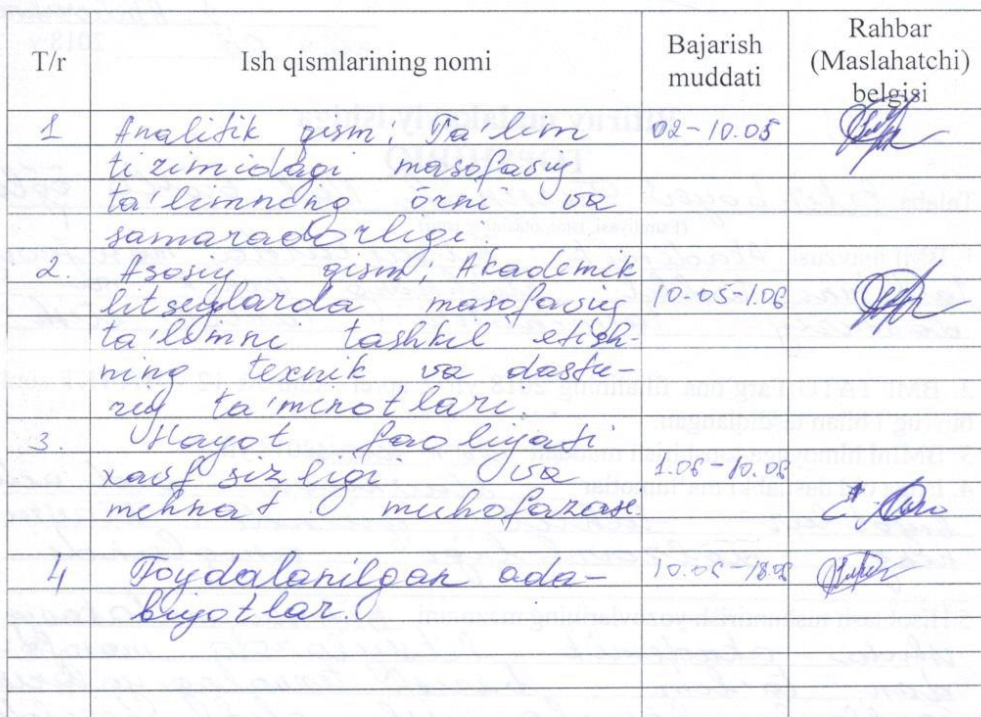 T/r Ish qismlarining nomi Bajarish muddati Rahbar (Maslahatchi) belgisi
1 Analitik qism. Ta'lim 02-10.05
tizimidagi masofaviy
ta'limning o'rni va
samaradorligi
2. Asosiy qism. Akademik
litseylarda masofaviy 10-05-1.06
ta'limni tashkil etish-
ning texnik va dastu-
riy ta'minotlari.
3. Hayot faoliyati
xavfsizligi va 1.06-10.06
mehnat muhofazasi.
4 Foydalanilgan ada- 10.06-18.06
biyotlar.